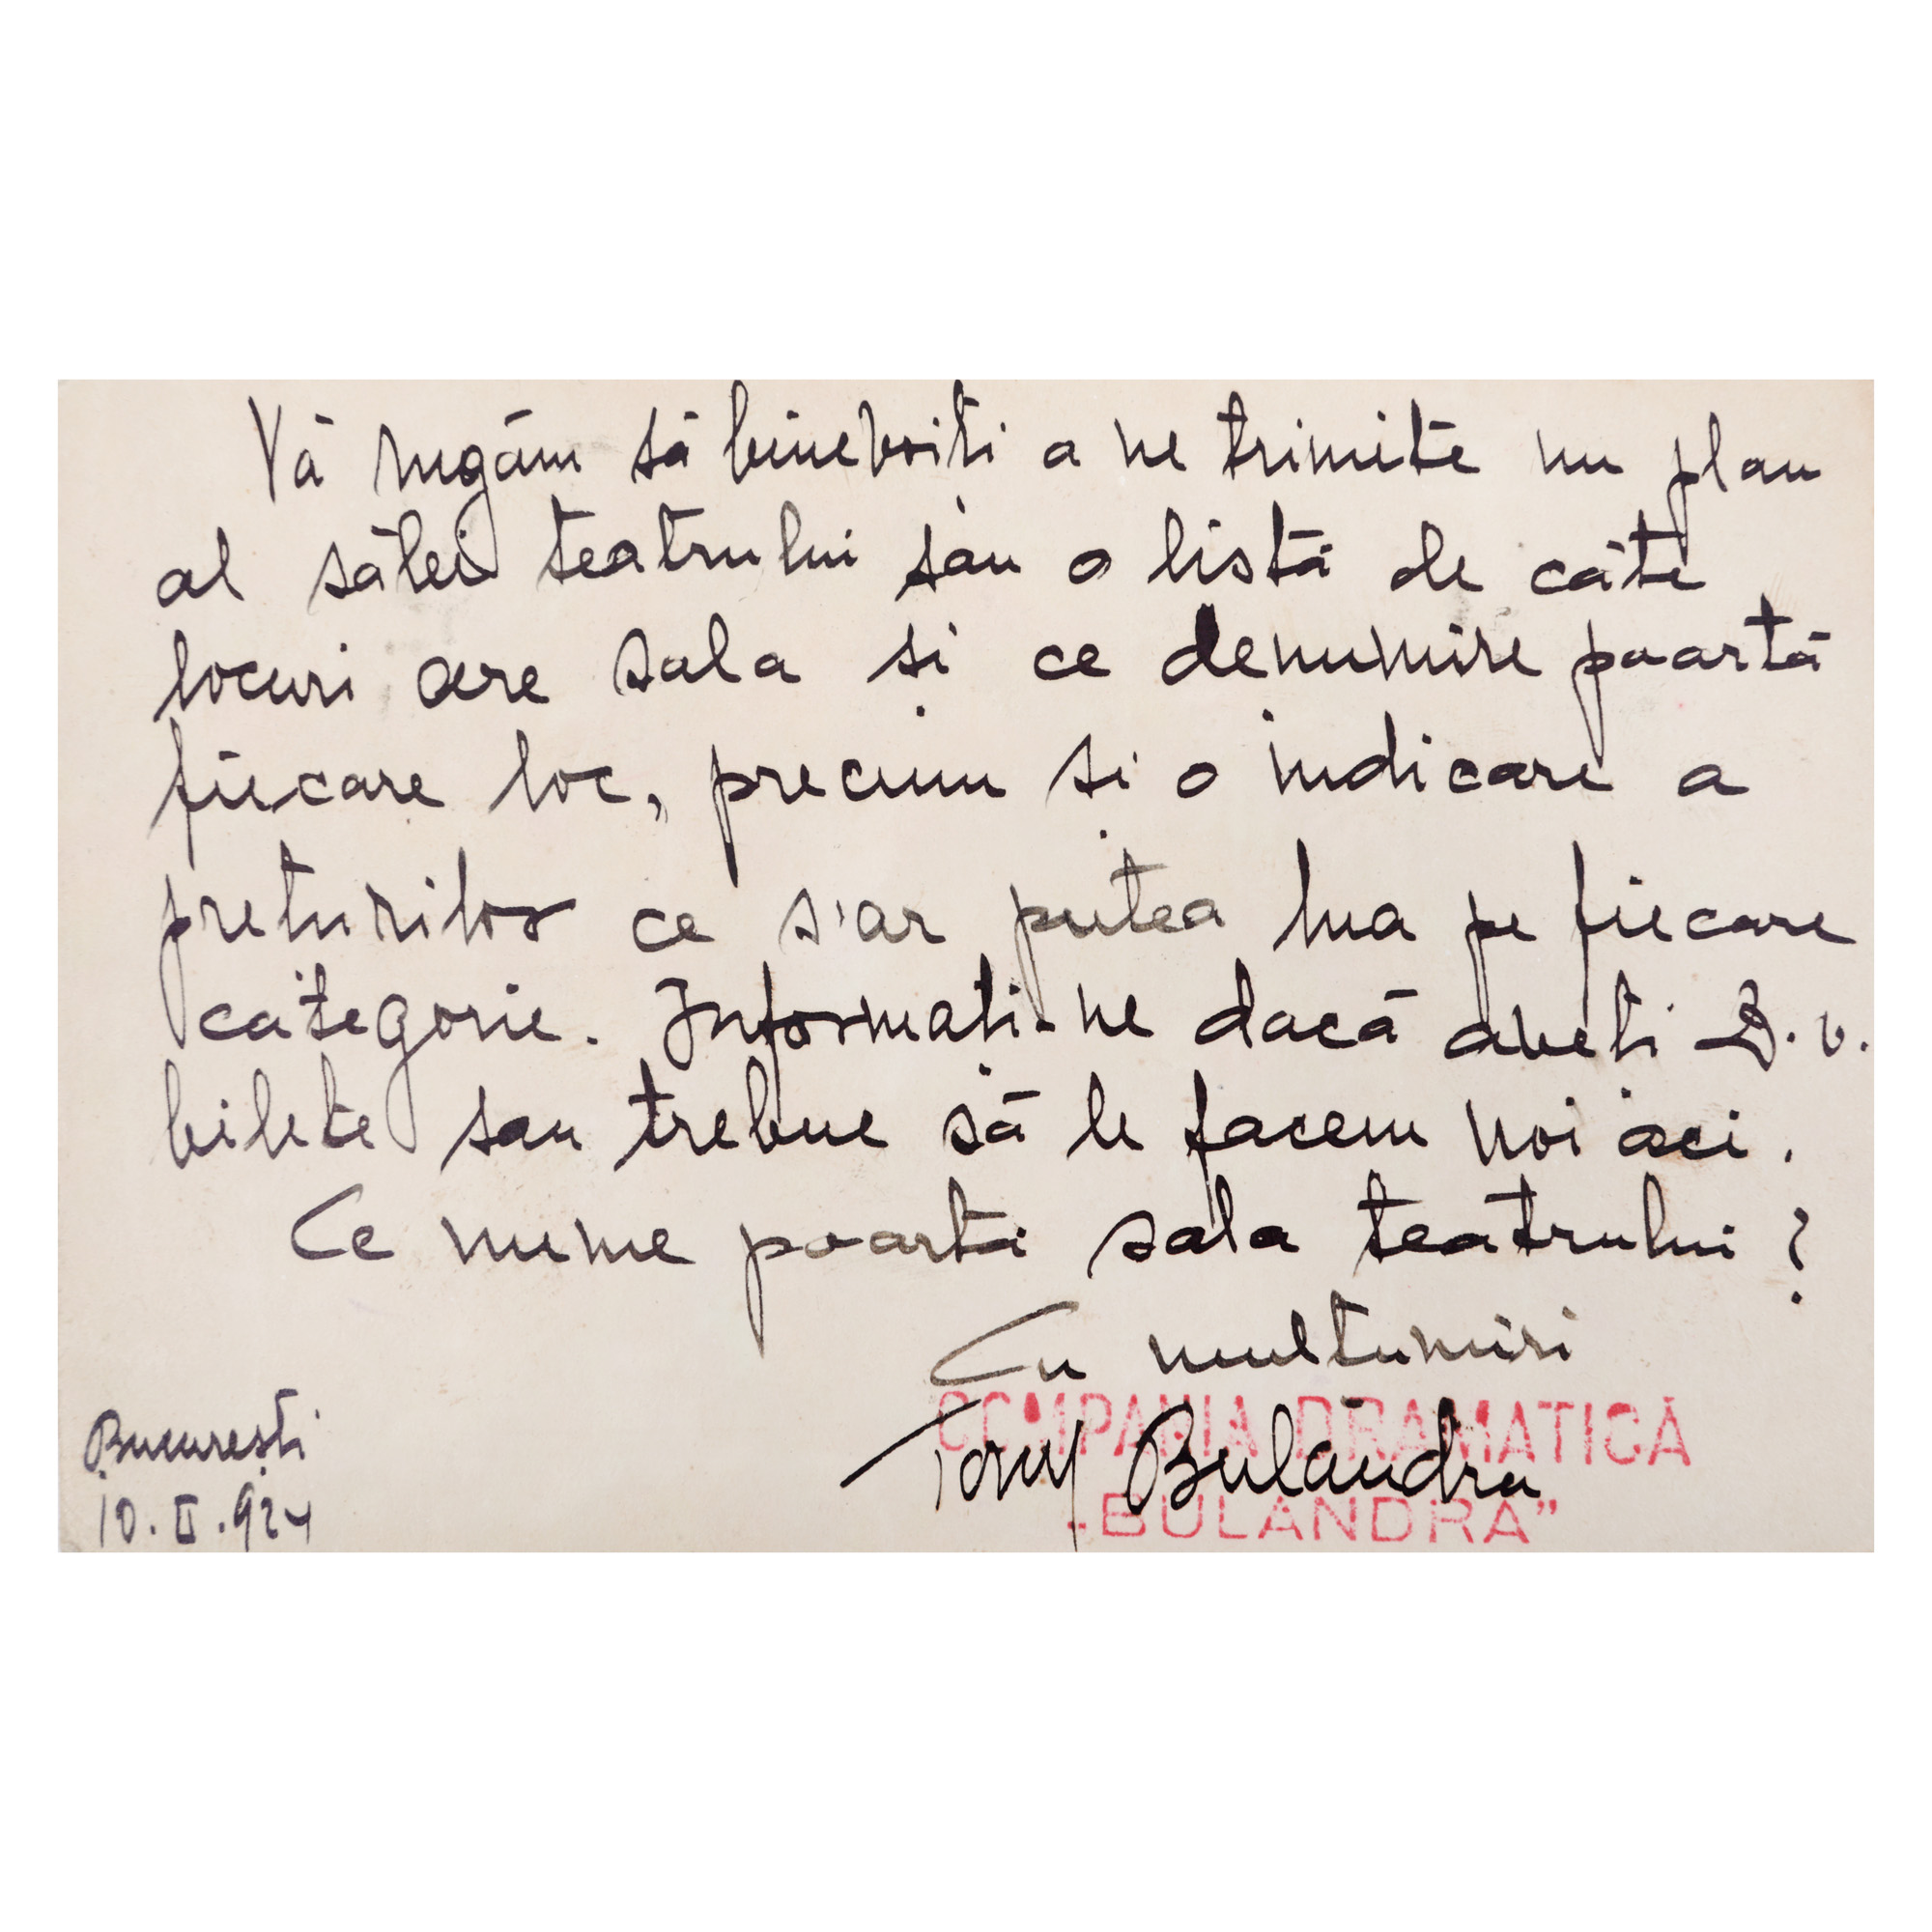 Vă rugăm să binevoiți a ne trimite un plan
al sălei teatrului sau o listă de câte
locuri are sala și ce denumire poartă
fiecare loc, precum și o indicare a
prețurilor ce s'ar putea lua pe fiecare
categorie. Informați-ne dacă aveți D.v.
bilete sau trebue să le facem noi aci.
Ce nume poartă sala teatrului?
Cu mulțumiri
COMPANIA DRAMATICĂ
Tony Bulandra
„BULANDRA”
București
10.II.924